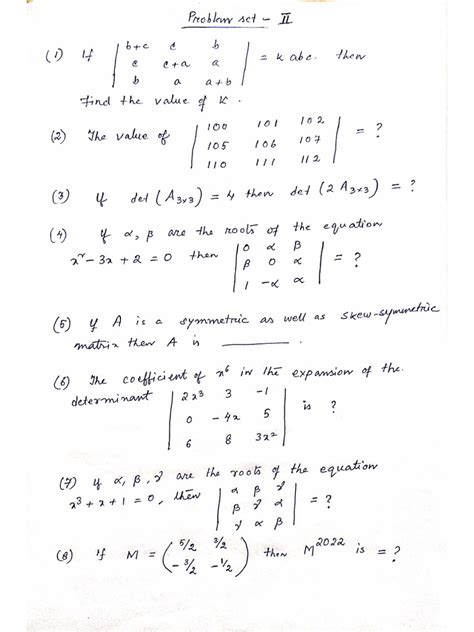 Problem set - II
(1) If | b+c c b |
| c c+a a | = k abc. then
| b a a+b |
Find the value of K.
(2) The value of | 100 101 102 |
| 105 106 107 | = ?
| 110 111 112 |
(3) If det (A₃ₓ₃) = 4 then det (2 A₃ₓ₃) = ?
(4) If α, β are the roots of the equation
x² - 3x + 2 = 0 then | 0 α β |
| β 0 α | = ?
| 1 -α α |
(5) If A is a symmetric as well as skew-symmetric
matrix then A is ________.
(6) The coefficient of x⁶ in the expansion of the
determinant | 2x³ 3 -1 |
| 0 -4x 5 | is ?
| 6 8 3x² |
(7) If α, β, γ are the roots of the equation
x³ + x + 1 = 0, then | α β γ |
| β γ α | = ?
| γ α β |
(8) If M = ( 5/2 3/2 ) then M²⁰²² is = ?
( -3/2 -1/2 )